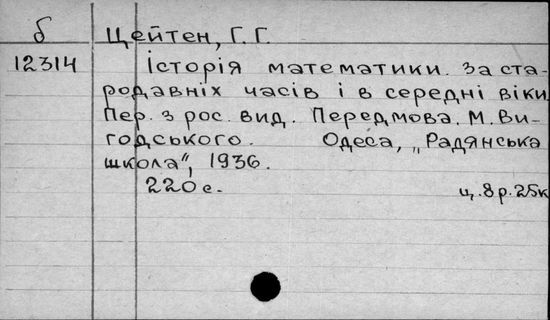 б Цейтен, Г. Г.
12314 Історія математики. За ста-
родавніх часів і в середні віки.
Пер. з рос. вид. Передмова. М. Ви-
годського. Одеса, „Радянська
школа", 1936.
220 с. ц. 8 р. 25к